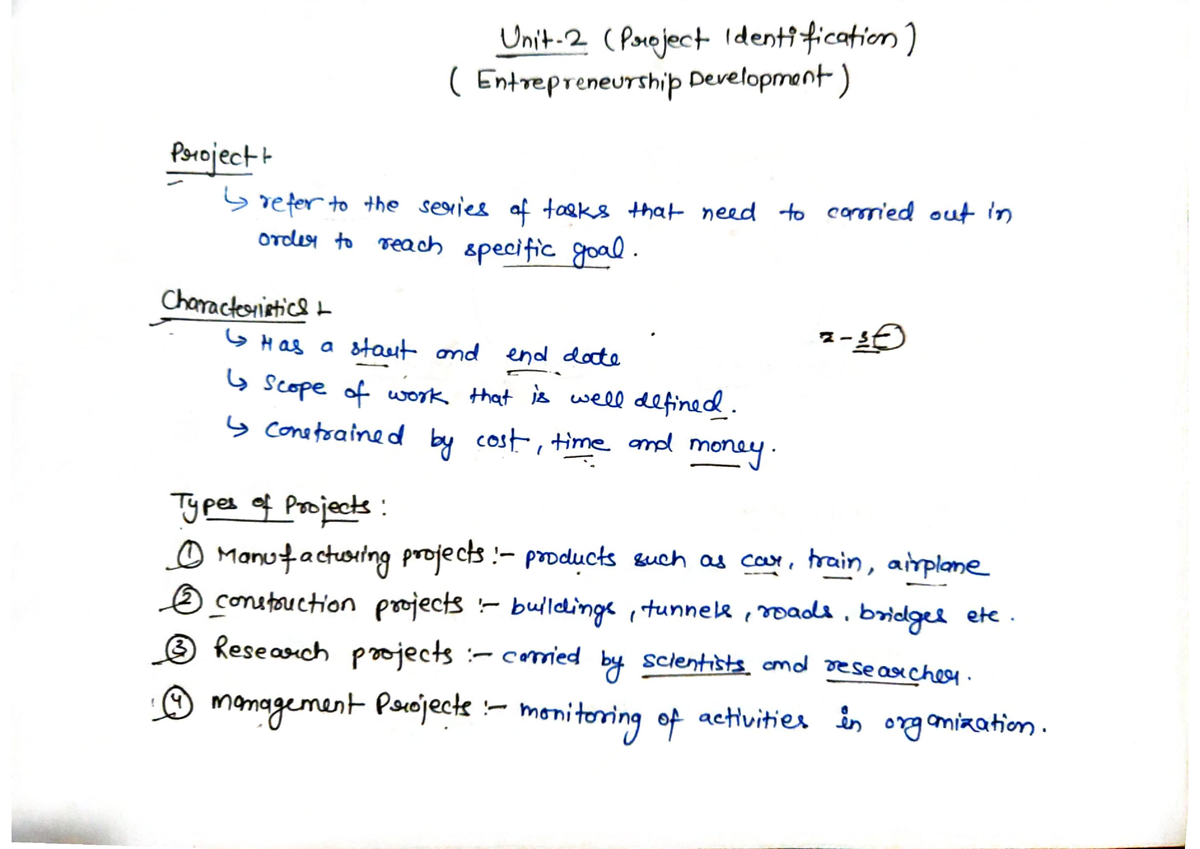 Unit-2 (Project Identification)
(Entrepreneurship Development)
Project
↳ refer to the series of tasks that need to carried out in
order to reach specific goal.
Characteristics
↳ Has a start and end date
↳ Scope of work that is well defined.
↳ Constrained by cost, time and money.
Types of Projects:
① Manufacturing projects :- products such as car, train, airplane
② construction projects :- buildings, tunnels, roads, bridges etc.
③ Research projects :- carried by scientists and researcher.
④ management Projects :- monitoring of activities in organization.